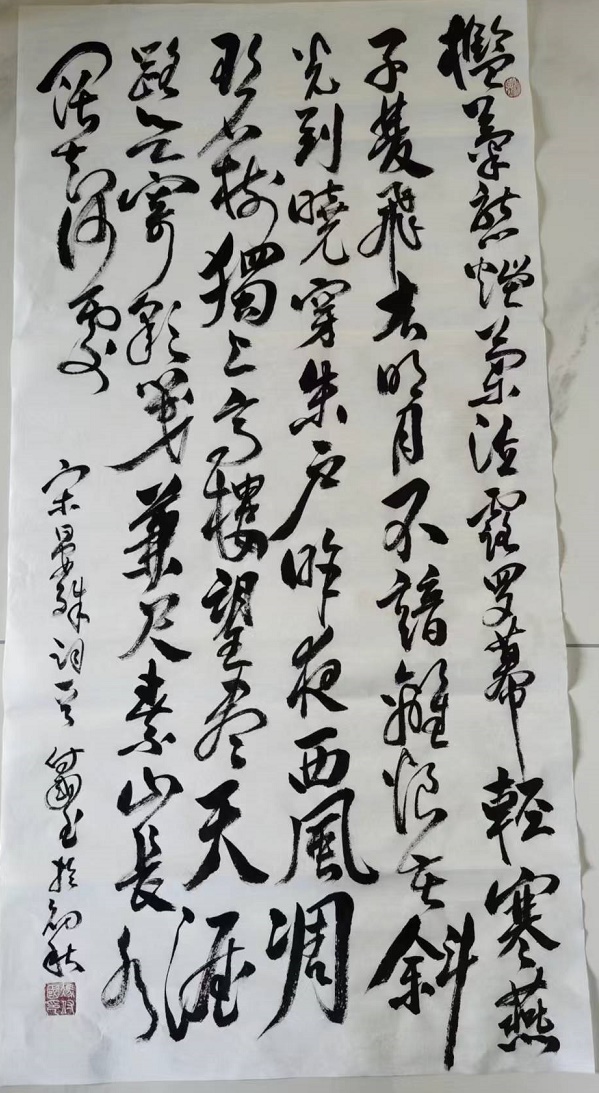 檻菊愁煙蘭泣露罗幕輕寒燕
子雙飛去明月不諳離恨苦斜
光到曉穿朱户昨夜西風凋
碧樹獨上高樓望盡天涯
路欲寄彩箋兼尺素山長水
闊知何處
宋晏殊詞 於初秋